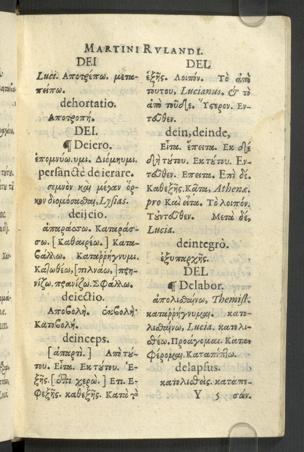 MARTINI RVLANDI.
DEI
Luci. Αποτρέπω. μετα-
πείπω.
dehortatio.
Αποτροπή.
DEI.
¶ Deiero.
ἐπομνυω.υμι. Διόμνυμι.
persanctè deierare.
σεμνὸν καὶ μέγαν ὁρ-
κον διομόσαθαι, Lysias.
deijcio.
ἀπαράσσω. Καταράσ-
σω. [Καθαιρέω.] Κατα-
βάλλω. Καταῤῥήγνυμι.
σφάλλω.
deiectio.
Αποβολή. ἐκβολή.
Καταβολή.
deinceps.
[ἀπαρτὶ.] Απὸ τύ-
του. Εἶτα. Εκτύτου. Ε-
ξῆς. Ετι. Ε-
φεξῆς. καθεξῆς. Κατὰ τὸ
DEL
ἑξῆς. Λοιπόν. Τὸ ἀπὸ
τούτου, Lucianus. & τὸ
ἀπὸ τοῦδε. Ὕστερον. Εν-
τεῦθεν.
dein, deinde,
Εἶτα. ἔπειτα. Εκ δὲ
τύτου. Εκ τύτου. Εν-
τεῦθεν. Επειτα. Επὶ δέ.
Καθεξῆς. Κᾆτα, Athenæ.
pro Καὶ εἶτα. Τὸ λοιπόν.
Τὐντεῦθεν. Μετὰ δὲ,
Lucia.
deintegrò.
ἐξυπαρχῆς.
DEL
¶ Delabor.
ἀπολισθαίνω, Themist.
καταῤῥήγνυμαι. κατο-
λισθαίνω, Lucia. κατολι-
σθέω. Προάγομαι. Κατα-
φέρομαι. Καταπίπτω.
delapsus.
κατολισθείς. καταπε-
Y 5 σών.